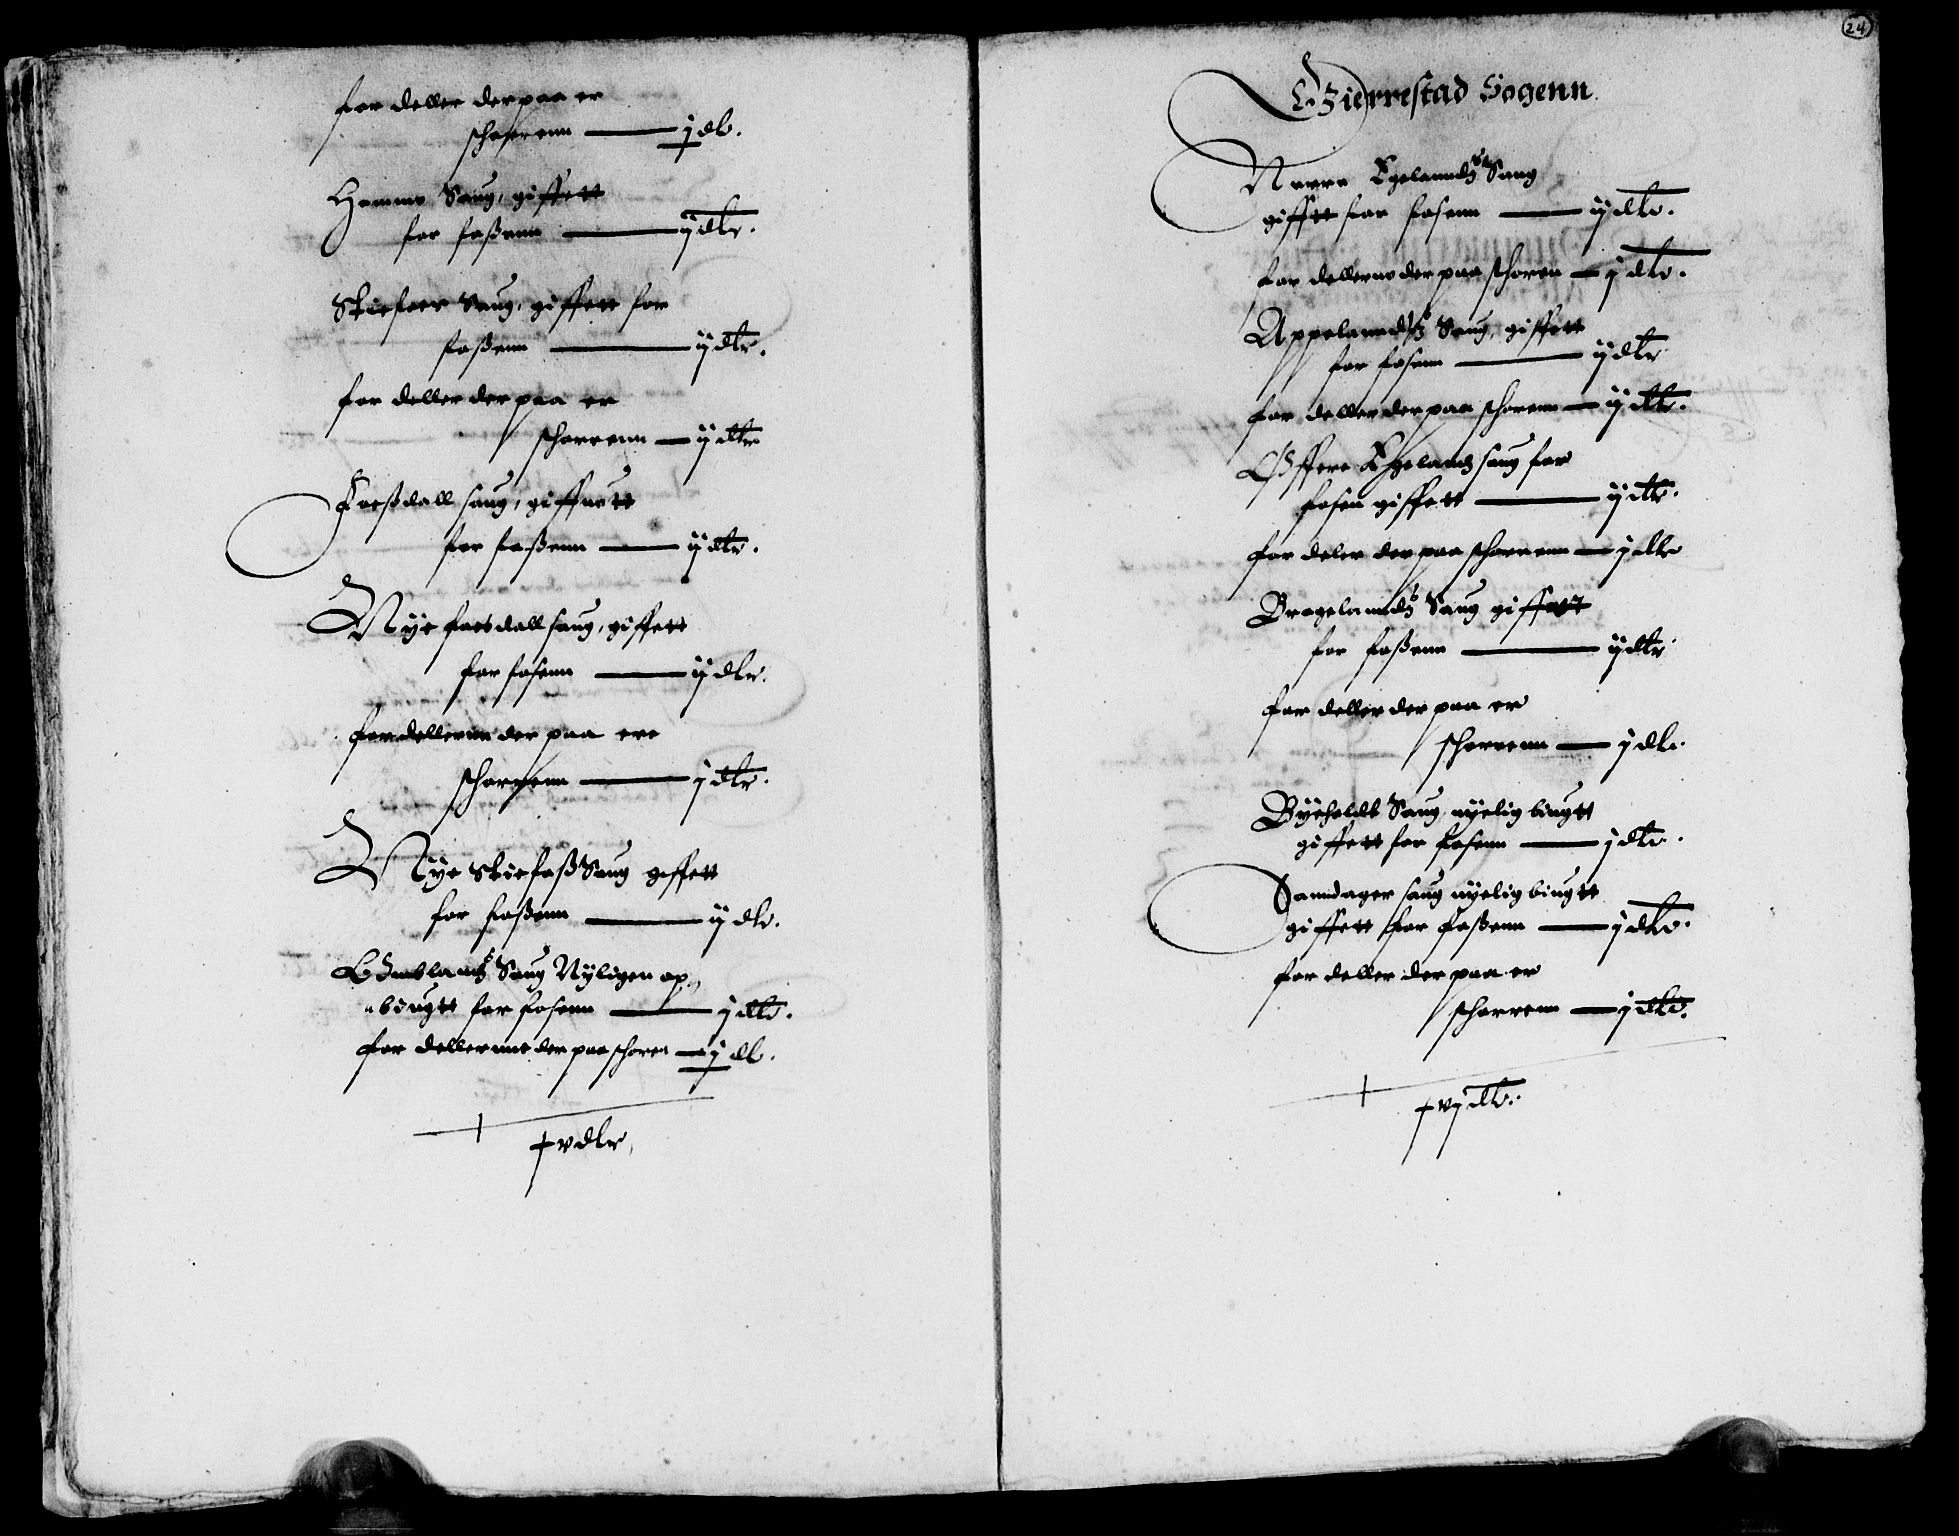 for deller der paa er
schorrenn — j dlr.
Homme Saug, giffett
for foßenn — ij dlr.
Skiefoer Saug, giffett for
foßenn — ij dlr.
for deller der paa er
schorrenn — ij dlr
Foeßdall saug, giffuett
for foßenn — ij dlr.
Nye foesdall saug, giffett
for fosenn — ij dlr.
for dellernn der paa ere
schorrenn — j dlr.
Nye Skiefoß Saug geffett
for foßenn — ij dlr.
Saug Nyligen op
biugtt for fosenn — j dlr.
for dellernne der paa schoren — j dlr.
xv dlr
24
Gzierrestad Sogenn
Nerre Egelanndz Saug
giffett for fosenn — ij dlr.
for dellerne der paa schoren — j dlr.
Appelanndtz Saug, giffett
for fosenn — ij dlr
for deller der paa schorenn — ij dlr.
Øffere Egelandz saug for
fosen giffett — ij dlr.
for deler der paa schorrenn — j dlr
Bregelanndz Saug giffett
for foßenn — ij dlr
for deller der paa er
schorrenn — j dlr.
Byeholdt Saug nyelig biugtt
giffett for fosenn — j dlr.
Sanndager saug nyelig biugtt
giffett for foßenn — j dlr.
for deller der paa er
schorrenn — j dlr.
xvj dlr.